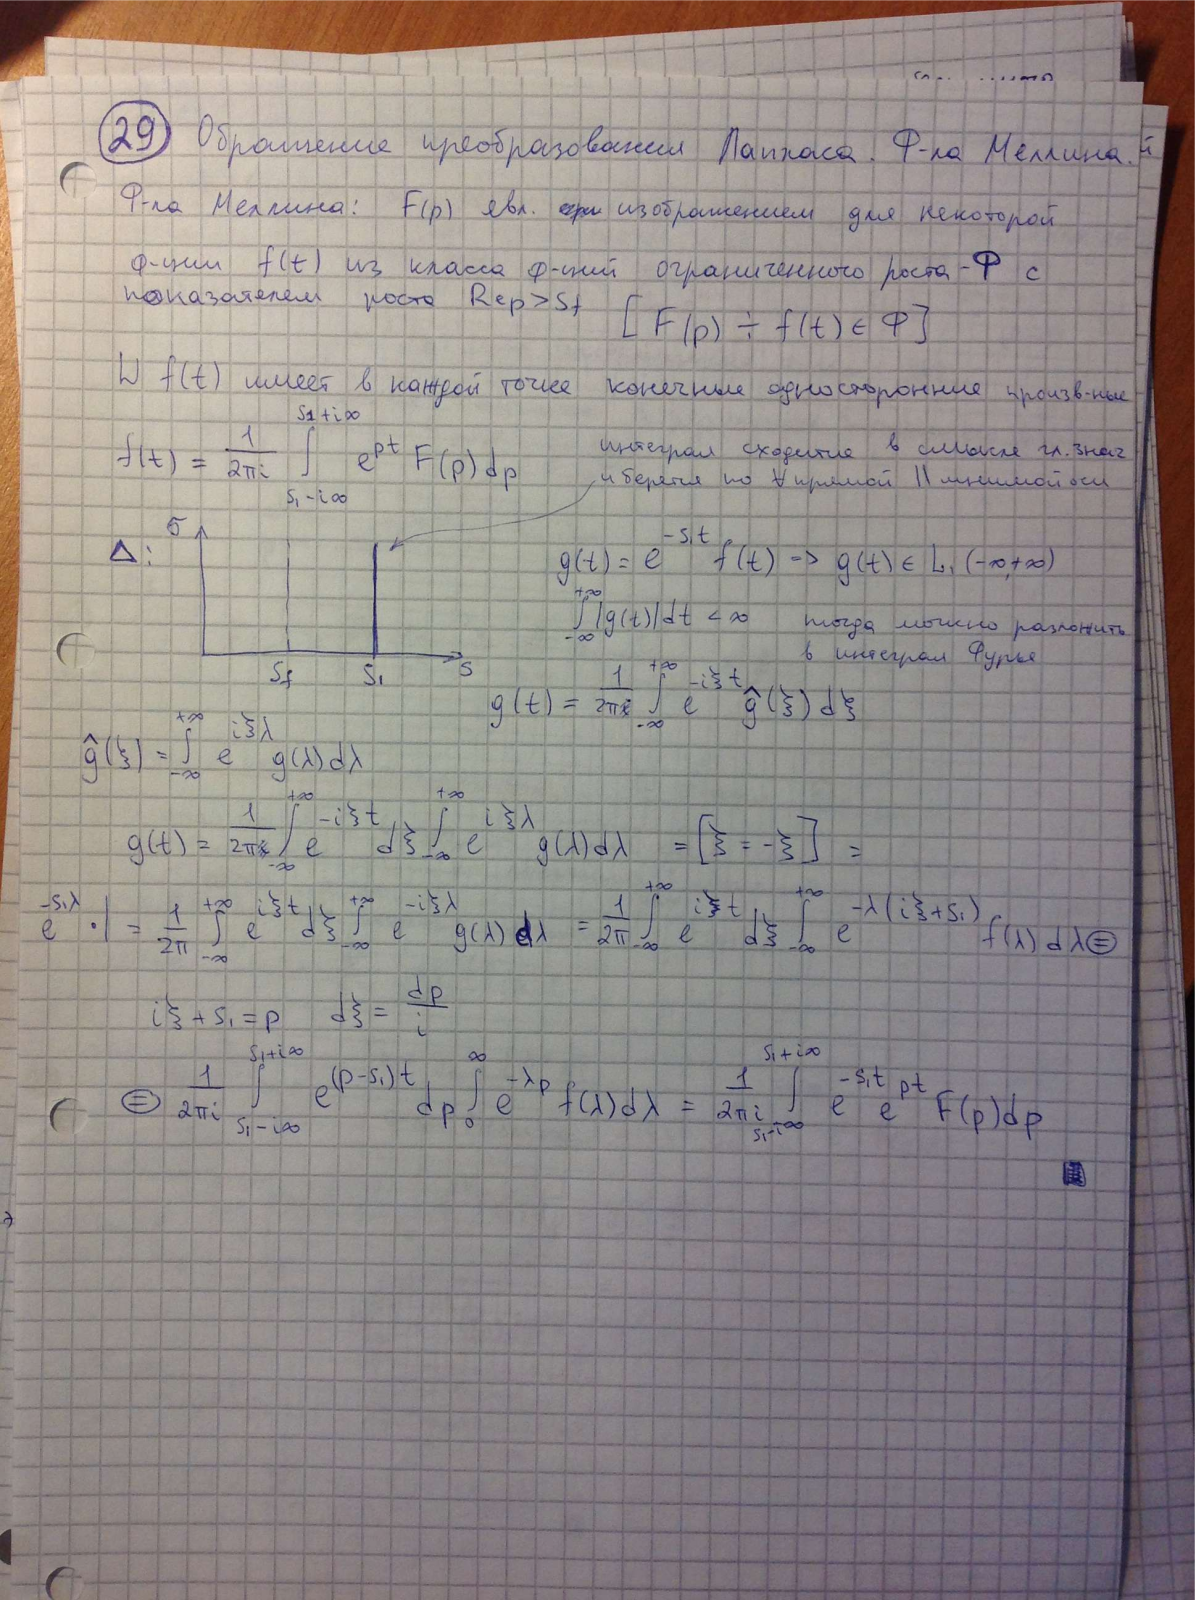 29 Обращение преобразования Лапласа. Ф-ла Меллина.
Ф-ла Меллина: F(p) явл. изображением для некоторой
ф-ции f(t) из класса ф-ций ограниченного роста - Ф с
показателем роста Re p > S_f [F(p) ÷ f(t) ∈ Ф]
f(t) имеет в каждой точке конечные односторонние произв-ные
f(t) = 1/2πi ∫_{S₁-i∞}^{S₁+i∞} e^{pt} F(p) dp
интеграл сходится в смысле гл. знач
и берется по ∀ прямой || мнимой оси
Δ: σ S_f S₁ S
g(t) = e^{-S₁t} f(t) -> g(t) ∈ L₁ (-∞,+∞)
∫_{-∞}^{+∞} |g(t)| dt < ∞ тогда можно разложить
в интеграл Фурье
g(t) = 1/2π ∫_{-∞}^{+∞} e^{-iξt} ĝ(ξ) dξ
ĝ(ξ) = ∫_{-∞}^{+∞} e^{iξλ} g(λ) dλ
g(t) = 1/2π ∫_{-∞}^{+∞} e^{-iξt} dξ ∫_{-∞}^{+∞} e^{iξλ} g(λ) dλ = [ξ = -ξ] =
e^{-S₁λ} · | = 1/2π ∫_{-∞}^{+∞} e^{iξt} dξ ∫_{-∞}^{+∞} e^{-iξλ} g(λ) dλ = 1/2π ∫_{-∞}^{+∞} e^{iξt} dξ ∫_{-∞}^{+∞} e^{-λ(iξ+S₁)} f(λ) dλ ⊜
iξ + S₁ = p dξ = dp/i
⊜ 1/2πi ∫_{S₁-i∞}^{S₁+i∞} e^{(p-S₁)t} dp ∫_0^∞ e^{-λp} f(λ) dλ = 1/2πi ∫_{S₁-i∞}^{S₁+i∞} e^{-S₁t} e^{pt} F(p) dp